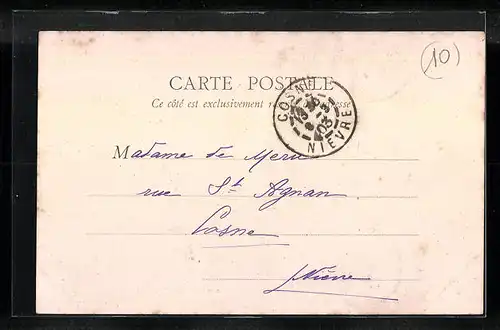 (10)
CARTE POSTALE
Ce côté est exclusivement réservé à l'adresse
COSNE
03
NIEVRE
Madame de Meru
rue St Agnan
Cosne
Nièvre